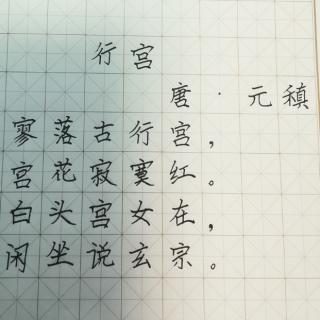 行宫
唐·元稹
寥落古行宫，
宫花寂寞红。
白头宫女在，
闲坐说玄宗。